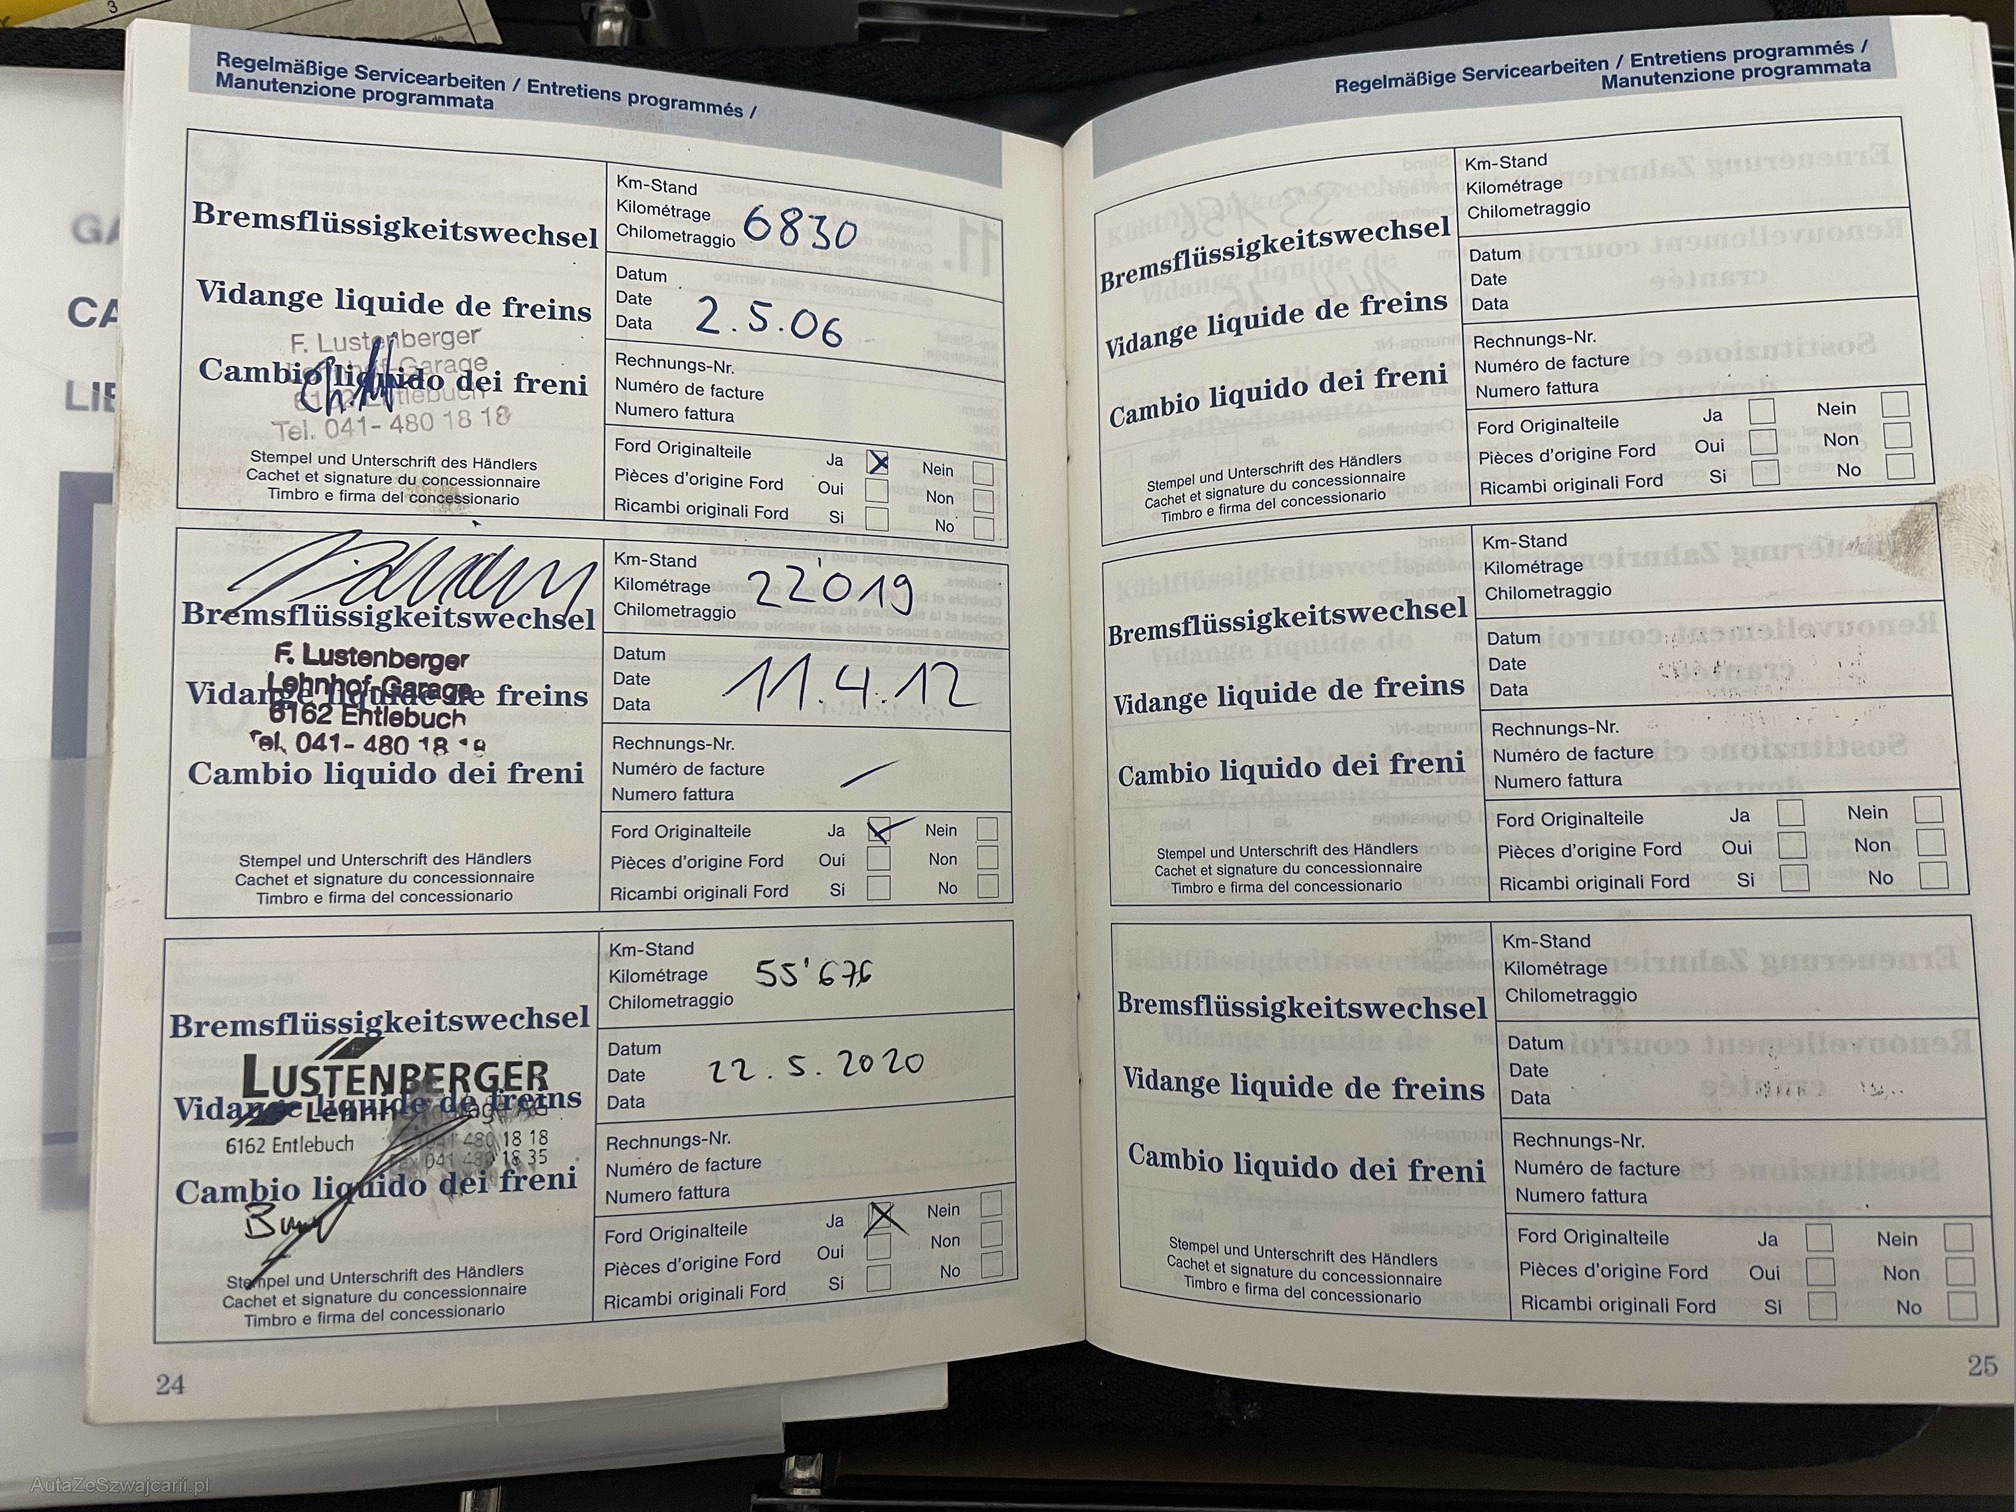 3
GA
CA
LIE
Regelmäßige Servicearbeiten / Entretiens programmés /
Manutenzione programmata
Bremsflüssigkeitswechsel
Vidange liquide de freins
Cambio liquido dei freni
F. Lustenberger
Garage
6162 Entlebuch
Tel. 041- 480 18 18
Stempel und Unterschrift des Händlers
Cachet et signature du concessionnaire
Timbro e firma del concessionario
Km-Stand
Kilométrage
Chilometraggio
6830
Datum
Date
Data
2.5.06
Rechnungs-Nr.
Numéro de facture
Numero fattura
Ford Originalteile Ja Nein
Pièces d'origine Ford Oui Non
Ricambi originali Ford Si No
Bremsflüssigkeitswechsel
F. Lustenberger
Lehnhof-Garage
Vidange liquide de freins
6162 Entlebuch
Tel. 041- 480 18 18
Cambio liquido dei freni
Stempel und Unterschrift des Händlers
Cachet et signature du concessionnaire
Timbro e firma del concessionario
Km-Stand
Kilométrage
Chilometraggio
22'019
Datum
Date
Data
11.4.12
Rechnungs-Nr.
Numéro de facture
Numero fattura
Ford Originalteile Ja Nein
Pièces d'origine Ford Oui Non
Ricambi originali Ford Si No
Bremsflüssigkeitswechsel
LUSTENBERGER
Vidange liquide de freins
6162 Entlebuch 041 480 18 18
Fax 041 480 18 35
Cambio liquido dei freni
Stempel und Unterschrift des Händlers
Cachet et signature du concessionnaire
Timbro e firma del concessionario
Km-Stand
Kilométrage
Chilometraggio
55'676
Datum
Date
Data
22.5.2020
Rechnungs-Nr.
Numéro de facture
Numero fattura
Ford Originalteile Ja Nein
Pièces d'origine Ford Oui Non
Ricambi originali Ford Si No
24
Regelmäßige Servicearbeiten / Entretiens programmés /
Manutenzione programmata
Bremsflüssigkeitswechsel
Vidange liquide de freins
Cambio liquido dei freni
Stempel und Unterschrift des Händlers
Cachet et signature du concessionnaire
Timbro e firma del concessionario
Km-Stand
Kilométrage
Chilometraggio
Datum
Date
Data
Rechnungs-Nr.
Numéro de facture
Numero fattura
Ford Originalteile Ja Nein
Pièces d'origine Ford Oui Non
Ricambi originali Ford Si No
Bremsflüssigkeitswechsel
Vidange liquide de freins
Cambio liquido dei freni
Stempel und Unterschrift des Händlers
Cachet et signature du concessionnaire
Timbro e firma del concessionario
Km-Stand
Kilométrage
Chilometraggio
Datum
Date
Data
Rechnungs-Nr.
Numéro de facture
Numero fattura
Ford Originalteile Ja Nein
Pièces d'origine Ford Oui Non
Ricambi originali Ford Si No
Bremsflüssigkeitswechsel
Vidange liquide de freins
Cambio liquido dei freni
Stempel und Unterschrift des Händlers
Cachet et signature du concessionnaire
Timbro e firma del concessionario
Km-Stand
Kilométrage
Chilometraggio
Datum
Date
Data
Rechnungs-Nr.
Numéro de facture
Numero fattura
Ford Originalteile Ja Nein
Pièces d'origine Ford Oui Non
Ricambi originali Ford Si No
25
AutaZeSzwajcarii.pl